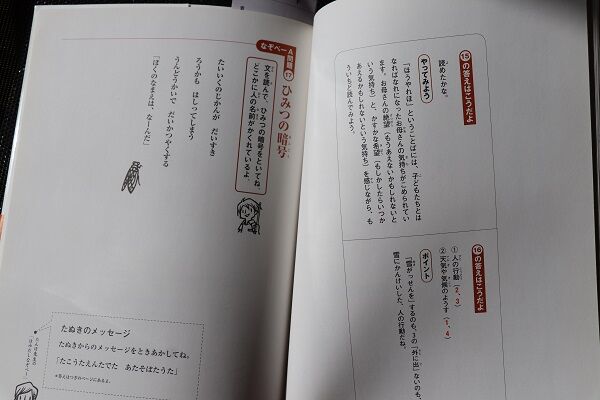 ⑮の答えはこうだよ
読めたかな。
やってみよう
「ほうやれほ」ということばには、子どもたちとは
なればなれになったお母さんの気持ちがこめられてい
ます。お母さんの絶望(もうあえないかもしれないと
いう気持ち)と、かすかな希望(もしかしたらいつか
あえるかもしれないという気持ち)を感じながら、も
ういちど読んでみよう。
⑯の答えはこうだよ
①人の行動(2、3)
②天気や気候のようす(1、4)
ポイント
「雪がっせんを」するのも、3の「外に出」ないのも、
雪にかんけいした、人の行動だね。
なぞペーA問題⑰
ひみつの暗号
文を読んで、ひみつの暗号をといてね。
どこかに人の名前がかくれているよ。
たいいくのじかんが だいすき
ろうかも はしってしまう
うんどうかいで だいかつやくする
「ぼくのなまえは、なーんだ」
たぬきのメッセージ
たぬきからのメッセージをときあかしてね。
「たこうたえんたでた あたそぼたうた」
*答えはつぎのページにあるよ。